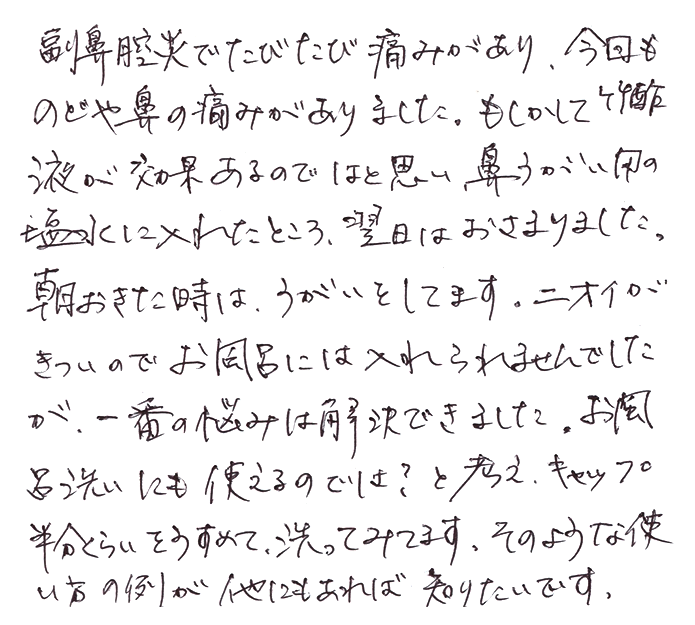 副鼻腔炎でたびたび痛みがあり、今回も
のどや鼻の痛みがありました。もしかして竹酢
液が効果あるのではと思い、鼻うがい用の
塩水に入れたところ、翌日はおさまりました。
朝おきた時は、うがいをしてます。ニオイが
きついのでお風呂には入れられませんでした
が、一番の悩みは解決できました。お風
呂洗いにも使えるのでは?と考え、キャップ
半分くらいをうすめて、洗ってみてます。そのような使
い方の例が他にもあれば知りたいです。